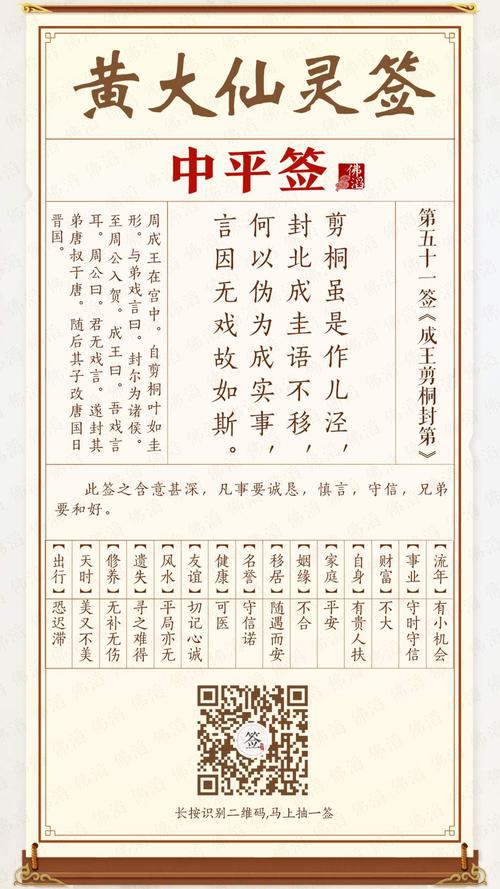 黄大仙灵签
中平签
佛滔
第五十一签《成王剪桐封第》
剪桐虽是作儿泾，
封北成圭语不移，
何以伪为成实事，
言因无戏故如斯。
周成王在宫中。自剪桐叶如圭
形。与弟戏言曰：封尔为诸侯。
至周公入贺。成王曰。吾戏言
耳。周公曰。君无戏言。遂封其
弟唐叔于唐。随后其子改唐国曰
晋国。
此签之含意甚深，凡事要诚恳，慎言，守信，兄弟
要和好。
【流年】有小机会
【事业】守时守信
【财富】不大
【自身】有贵人扶
【家庭】平安
【姻缘】不合
【移居】随遇而安
【名誉】守信诺
【健康】可医
【友谊】切记心诚
【风水】平局亦无
【遗失】寻之难得
【修养】无补无伤
【天时】美又不美
【出行】恐迟滞
签
长按识别二维码,马上抽一签